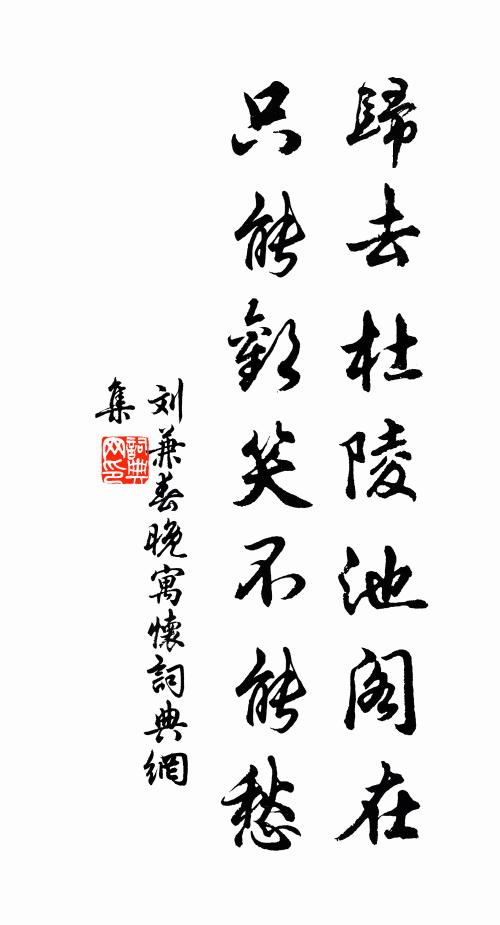 歸去杜陵池阁在
只能歡笑不能愁
刘兼春晚寓懷詞典網
集
詞典网印